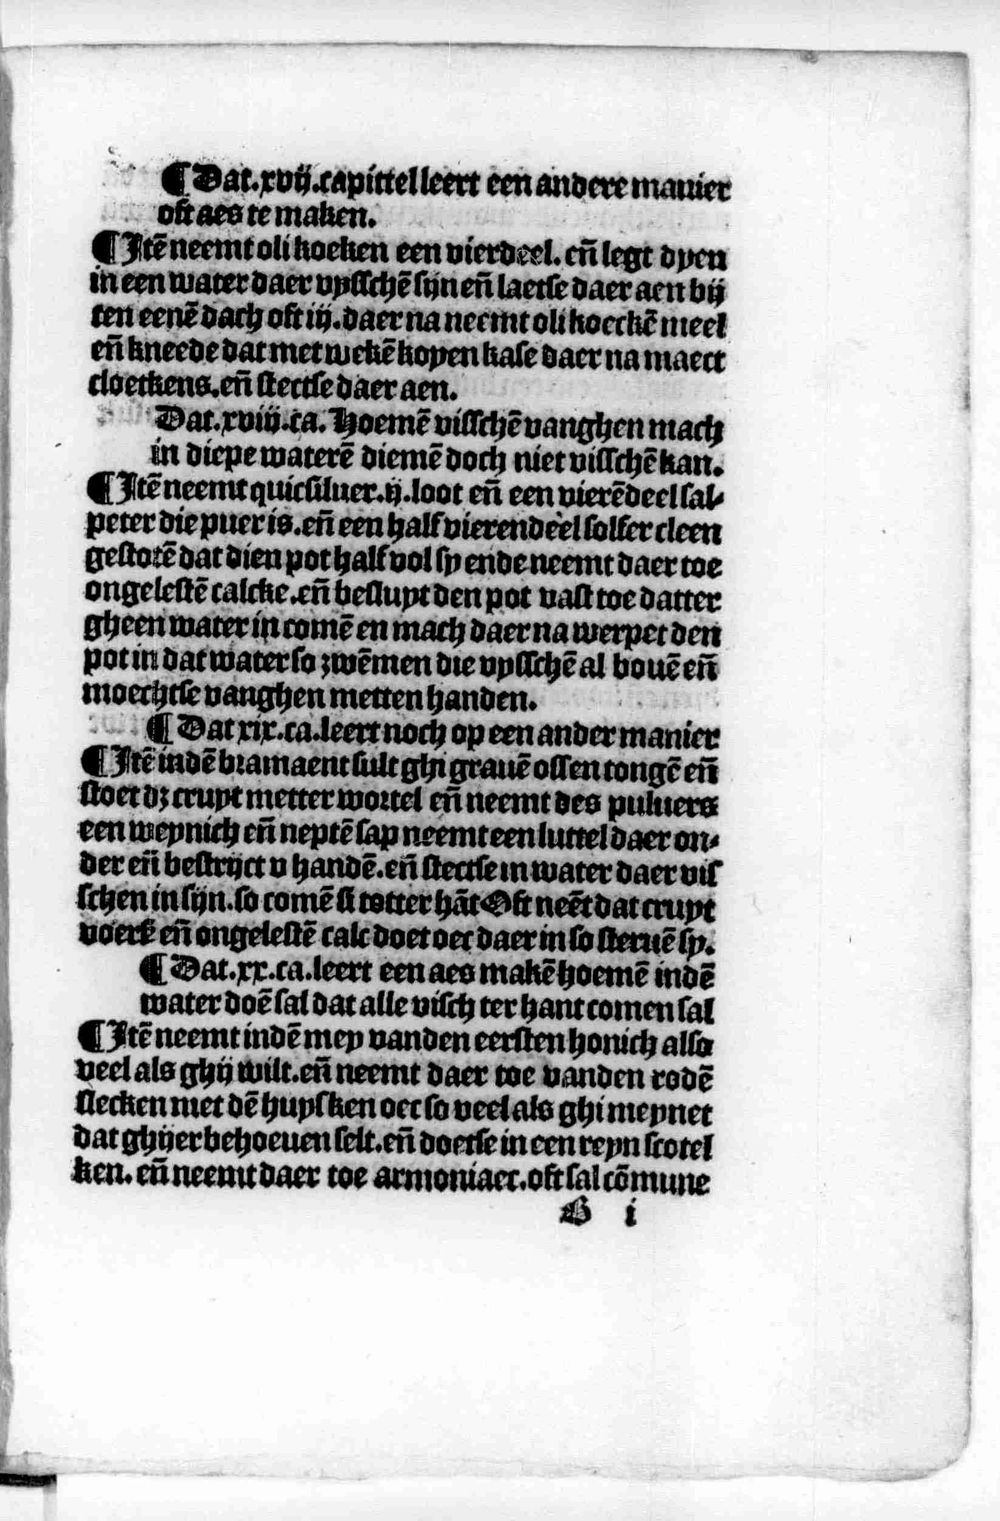 ¶Dat.xvij.capittel leert een andere manier
oft aes te maken.
¶Itē neemt oli koeken een vierdeel. en̄ legt dyen
in een water daer vysschē sijn en̄ laetse daer aen bij
ten eenē dach oft iij. daer na neemt oli koeckē meel
en̄ kneede dat met wekē koyen kase daer na maect
cloetkens. en̄ stectse daer aen.
Dat.xviij.ca. Hoemē visschē vanghen mach
in diepe waterē diemē doch niet visschē kan.
¶Itē neemt quicsiluer.ij.loot en̄ een vierēdeel sal⸗
peter die puer is. en̄ een half vierendeel solfer cleen
gestotē dat dien pot half vol sy ende neemt daer toe
ongelestē calcke. en̄ besluyt den pot vast toe datter
gheen water in comē en mach daer na werpet den
pot in dat water so zwēmen die vysschē al bouē en̄
moechtse vanghen metten handen.
¶Dat xix.ca.leert noch op een ander manier
¶Itē indē bramaent sult ghi grauē ossen tongē en̄
stoet dz cruyt metter wortel en̄ neemt des puluers
een weynich en̄ neptē sap neemt een luttel daer on⸗
der en̄ bestrijct v handē. en̄ stectse in water daer vis
schen in sijn. so comē si totter hāt Oft neēt dat cruyt
voerk̄ en̄ ongelestē calc doet oec daer in so steruē sy.
¶Dat.xx.ca.leert een aes makē hoemē indē
water doē sal dat alle visch ter hant comen sal
¶Itē neemt indē mey vanden eersten honich also
veel als ghij wilt. en̄ neemt daer toe vanden rodē
slecken met dē huysken oec so veel als ghi meynet
dat ghijer behoeuen selt. en̄ doetse in een reyn scotel
ken. en̄ neemt daer toe armoniaec. oft sal cōmune
B i